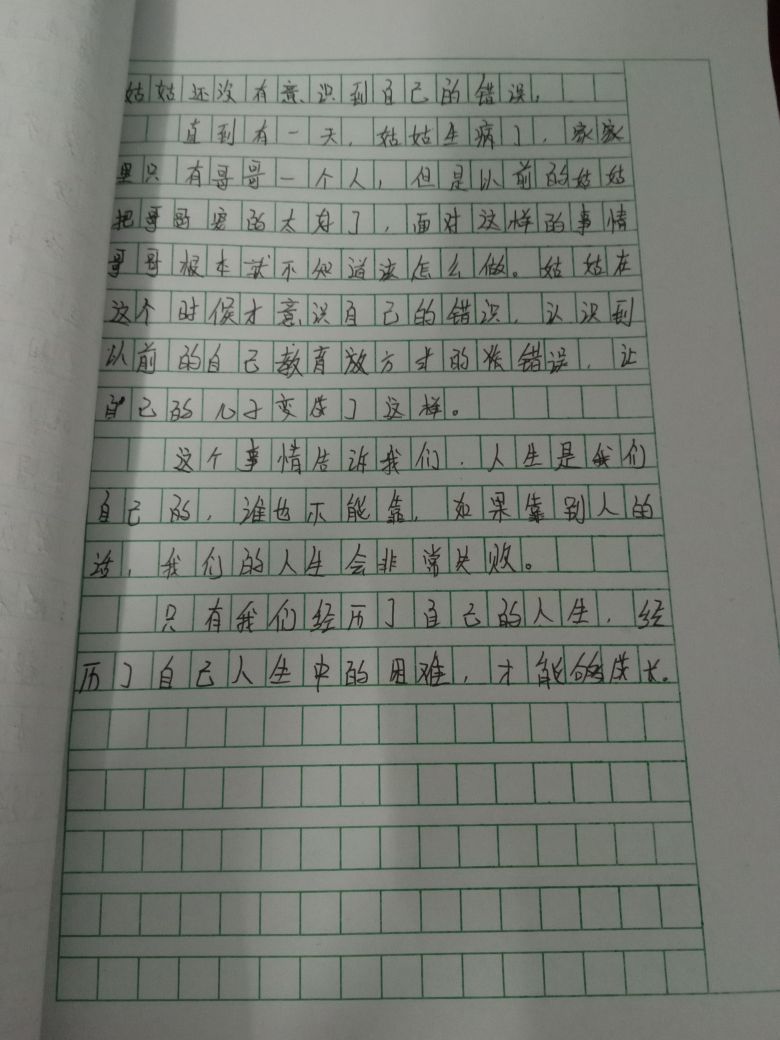 姑姑还没有意识到自己的错误,
直到有一天,姑姑生病了,家家
里只有哥哥一个人,但是以前的姑姑
把哥哥的太好了,面对这样的事情
哥哥根本就不知道该怎么做。姑姑在
这个时候才意识自己的错识,认识到
以前的自己教育放方式的错误,让
自己的儿子变成了这样。
这个事情告诉我们,人生是我们
自己的,谁也不能靠,如果靠别人的
话,我们的人生会非常失败。
只有我们经历了自己的人生,经
历了自己人生中的困难,才能够成长。